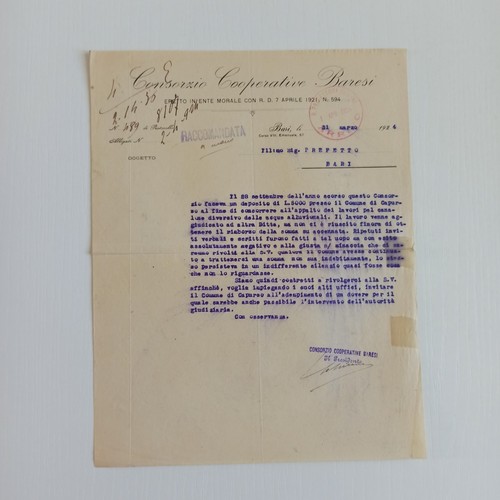 Consorzio Cooperative Baresi
ERETTO IN ENTE MORALE CON R. D. 7 APRILE 1921, N. 594
N. 389 di Protocollo
Allegati N.
OGGETTO
RACCOMANDATA
Bari, li 31 marzo 192
Corso Vitt. Emanuele, 57
Ill:mo Sig. PREFETTO
BARI
Il 28 settembre dell'anno scorso questo Consor-
zio faceva un deposito di L.5000 presso il Comune di Capur-
so al fine di concorrere all'appalto dei lavori pel cana-
lone diversivo delle acque alluvionali. Il lavoro venne ag-
giudicato ad altra Ditta, ma non ci è riuscito finora di ot-
tenere il rimborso della somma su accennata. Ripetuti invi-
ti verbali e scritti furono fatti a tal uopo ma con esito
assolutamente negativo e alla giusta n/ minaccia che di sa-
remmo rivolti alla S.V. qualora il Comune avesse continua-
to a trattenersi una somma non sua indebitamente, lo stes-
so persisteva in un indifferente silenzio quasi fosse cosa
che non lo riguardasse.
Siamo quindi costretti a rivolgerci alla S.V.
affinchè, voglia impiegando i suoi alti uffici, invitare
il Comune di Capurso all'adempimento di un dovere per il
quale sarebbe anche passibile l'intervento dell'autorità
giudiziaria.
Con osservanza.
CONSORZIO COOPERATIVE BARESI
Il Presidente